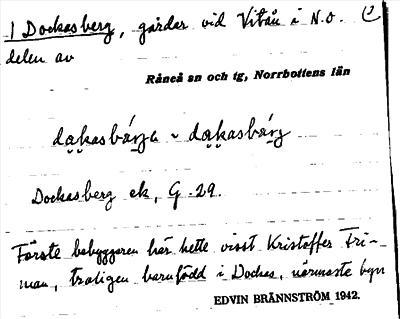 1 Dockasberg, gårdar vid Vitån i N.O. (1)
delen av
Råneå sn och tg, Norrbottens län
dạkasbárja ~ dạkasbárj
Dockasberg ek, G. 29.
Förste bebyggaren här hette visst Kristoffer Fri-
man, troligen barnfödd i Dockas, närmaste byn
EDVIN BRÄNNSTRÖM 1942.